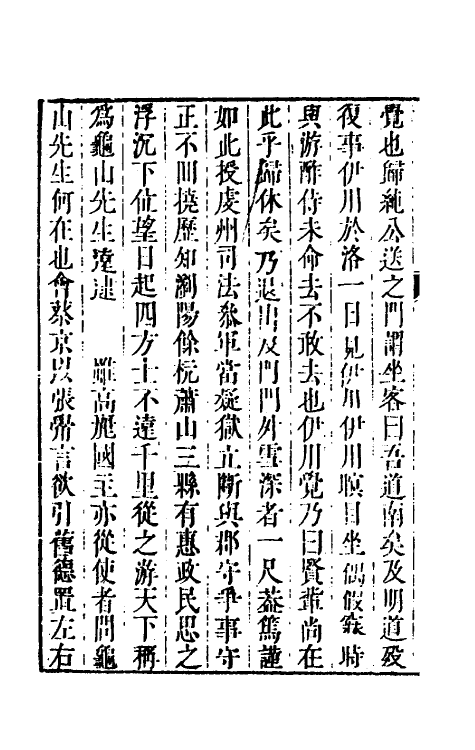 覺也歸純公送之門謂坐客曰吾道南矣及明道歿
復事伊川於洛一日見伊川伊川瞑目坐偶假寐時
與游酢侍未命去不敢去也伊川覺乃曰賢輩尚在
此乎歸休矣乃退出及門門外雪深者一尺葢篤謹
如此授虔州司法叅軍當疑獄立斷與郡守爭事守
正不回撓歷知瀏陽餘杭蕭山三縣有惠政民思之
浮沉下位望日起四方士不遠千里從之游天下稱
爲龜山先生遠逮 雖高麗國王亦從使者問龜
山先生何在也會蔡京以張觷言欲引舊德置左右